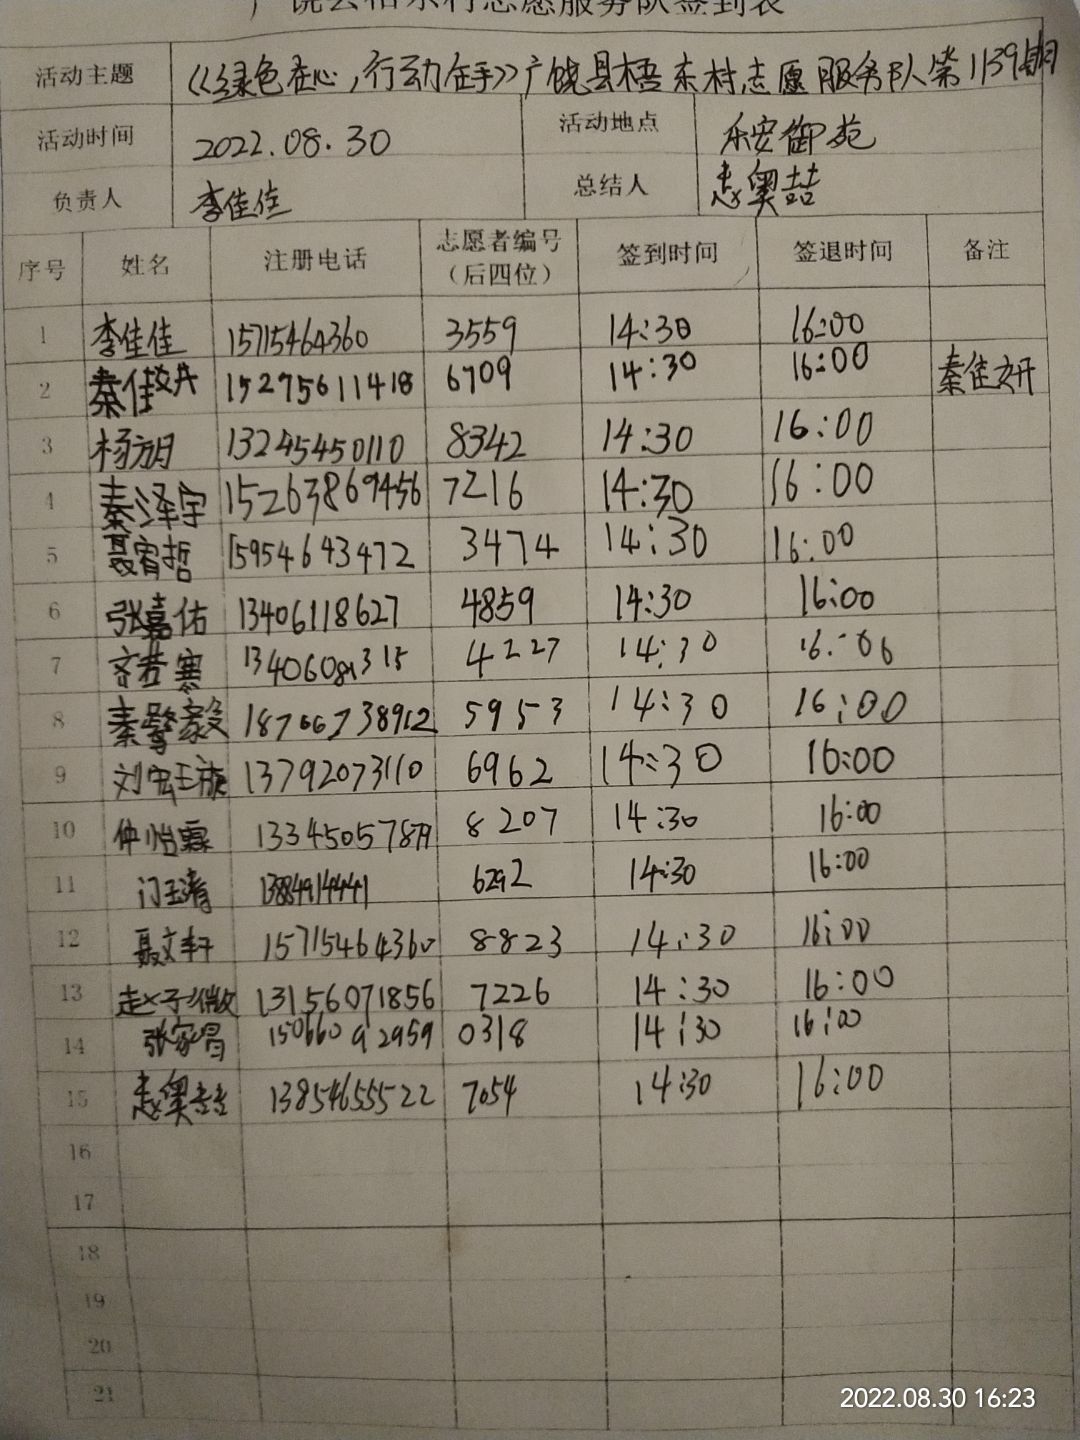 广饶县梧东村志愿服务队签到表
活动主题 《绿色在心,行动在手》广饶县梧东村志愿服务队第1139期
活动时间 2022.08.30 活动地点 乐安御苑
负责人 李佳佳 总结人 赵奥喆
序号 姓名 注册电话 志愿者编号(后四位) 签到时间 签退时间 备注
1 李佳佳 15715464360 3559 14:30 16:00
2 秦佳妍 15275611418 6709 14:30 16:00 秦佳妍
3 杨玥 13245450110 8342 14:30 16:00
4 秦泽宇 15263869456 7216 14:30 16:00
5 聂宥哲 15954643472 3474 14:30 16:00
6 张嘉佑 13406118627 4859 14:30 16:00
7 齐若寒 13406081315 4227 14:30 16:00
8 秦擎毅 18766738912 5953 14:30 16:00
9 刘宏玉璇 13792073110 6962 14:30 16:00
10 仲怡霖 8207 14:30 16:00
11 门玉清 13884914441 6292 14:30 16:00
12 聂文轩 15715464360 8823 14:30 16:00
13 赵子微 13156071856 7226 14:30 16:00
14 张家昌 15066092959 0318 14:30 16:00
15 赵奥喆 13854655522 7054 14:30 16:00
16
17
18
19
20
21
2022.08.30 16:23